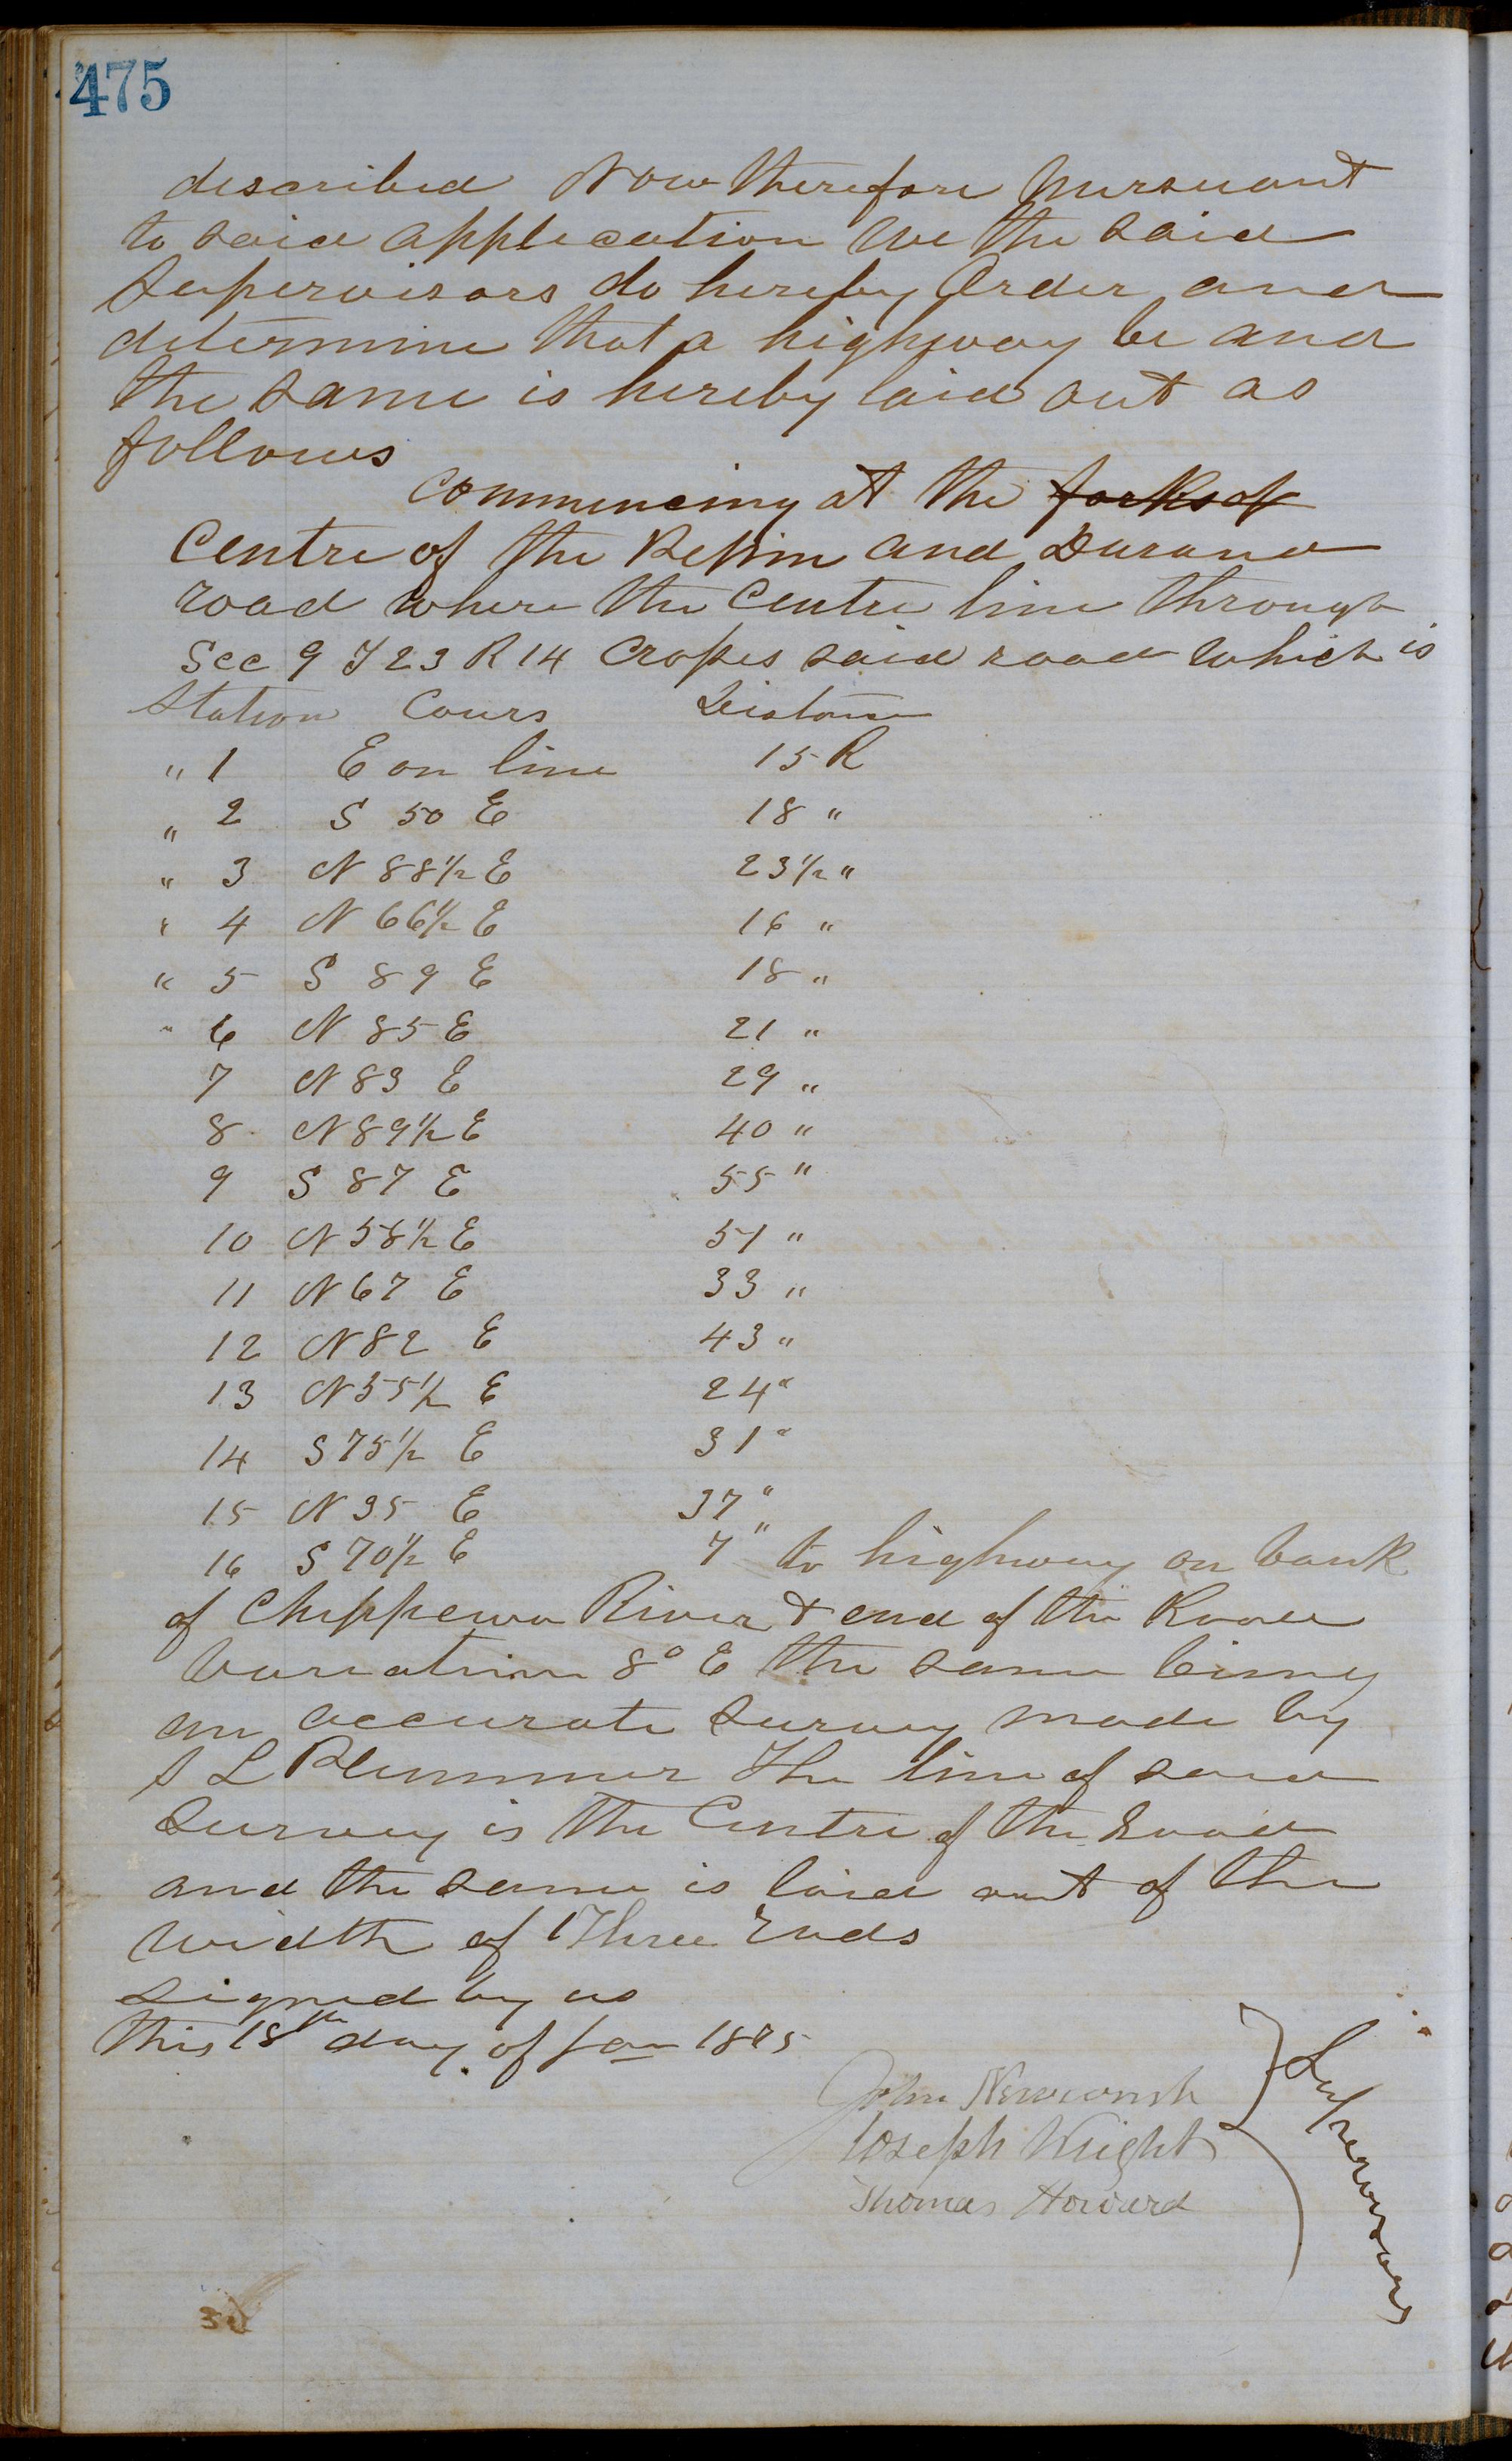 475
described Now therefore pursuant
to said application we the said
Supervisors do hereby Order and
determine that a highway be and
the same is hereby laid out as
follows
commencing at the forks of
Centre of the Pepin and Durand
road where the Centre line through
Sec 9 T 23 R 14 Crosses said road which is
Station Cours Distance
" 1 E on line 15 R
" 2 S 50 E 18 "
" 3 N 88 1/2 E 23 1/2 "
" 4 N 66 1/2 E 16 "
" 5 S 89 E 18 "
" 6 N 85 E 21 "
7 N 83 E 29 "
8 N 89 1/2 E 40 "
9 S 87 E 55 "
10 N 58 1/2 E 51 "
11 N 67 E 33 "
12 N 82 E 43 "
13 N 55 1/2 E 24 "
14 S 75 1/2 E 31 "
15 N 35 E 37 "
16 S 70 1/2 E 7 " to highway on bank
of Chippewa River & end of the Road
Variation 8° E the same being
an accurate survey made by
S L Plummer The line of said
survey is the Centre of the road
and the same is laid out of the
width of Three rods
signed by us
this 18th day of Jan 1875
John Newcomb
Joseph Wright
Thomas Howard
Supervisors